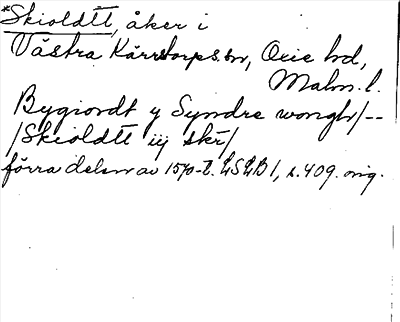 *Skioldtt, åker i
Västra Kärrstorps sn, Oxie hd,
Malm. l.
Bygiordt y Syndre wongh/--
/Skioldtt iij skr/
förra delen av 1570-t. LSLB 1, s. 409. orig.